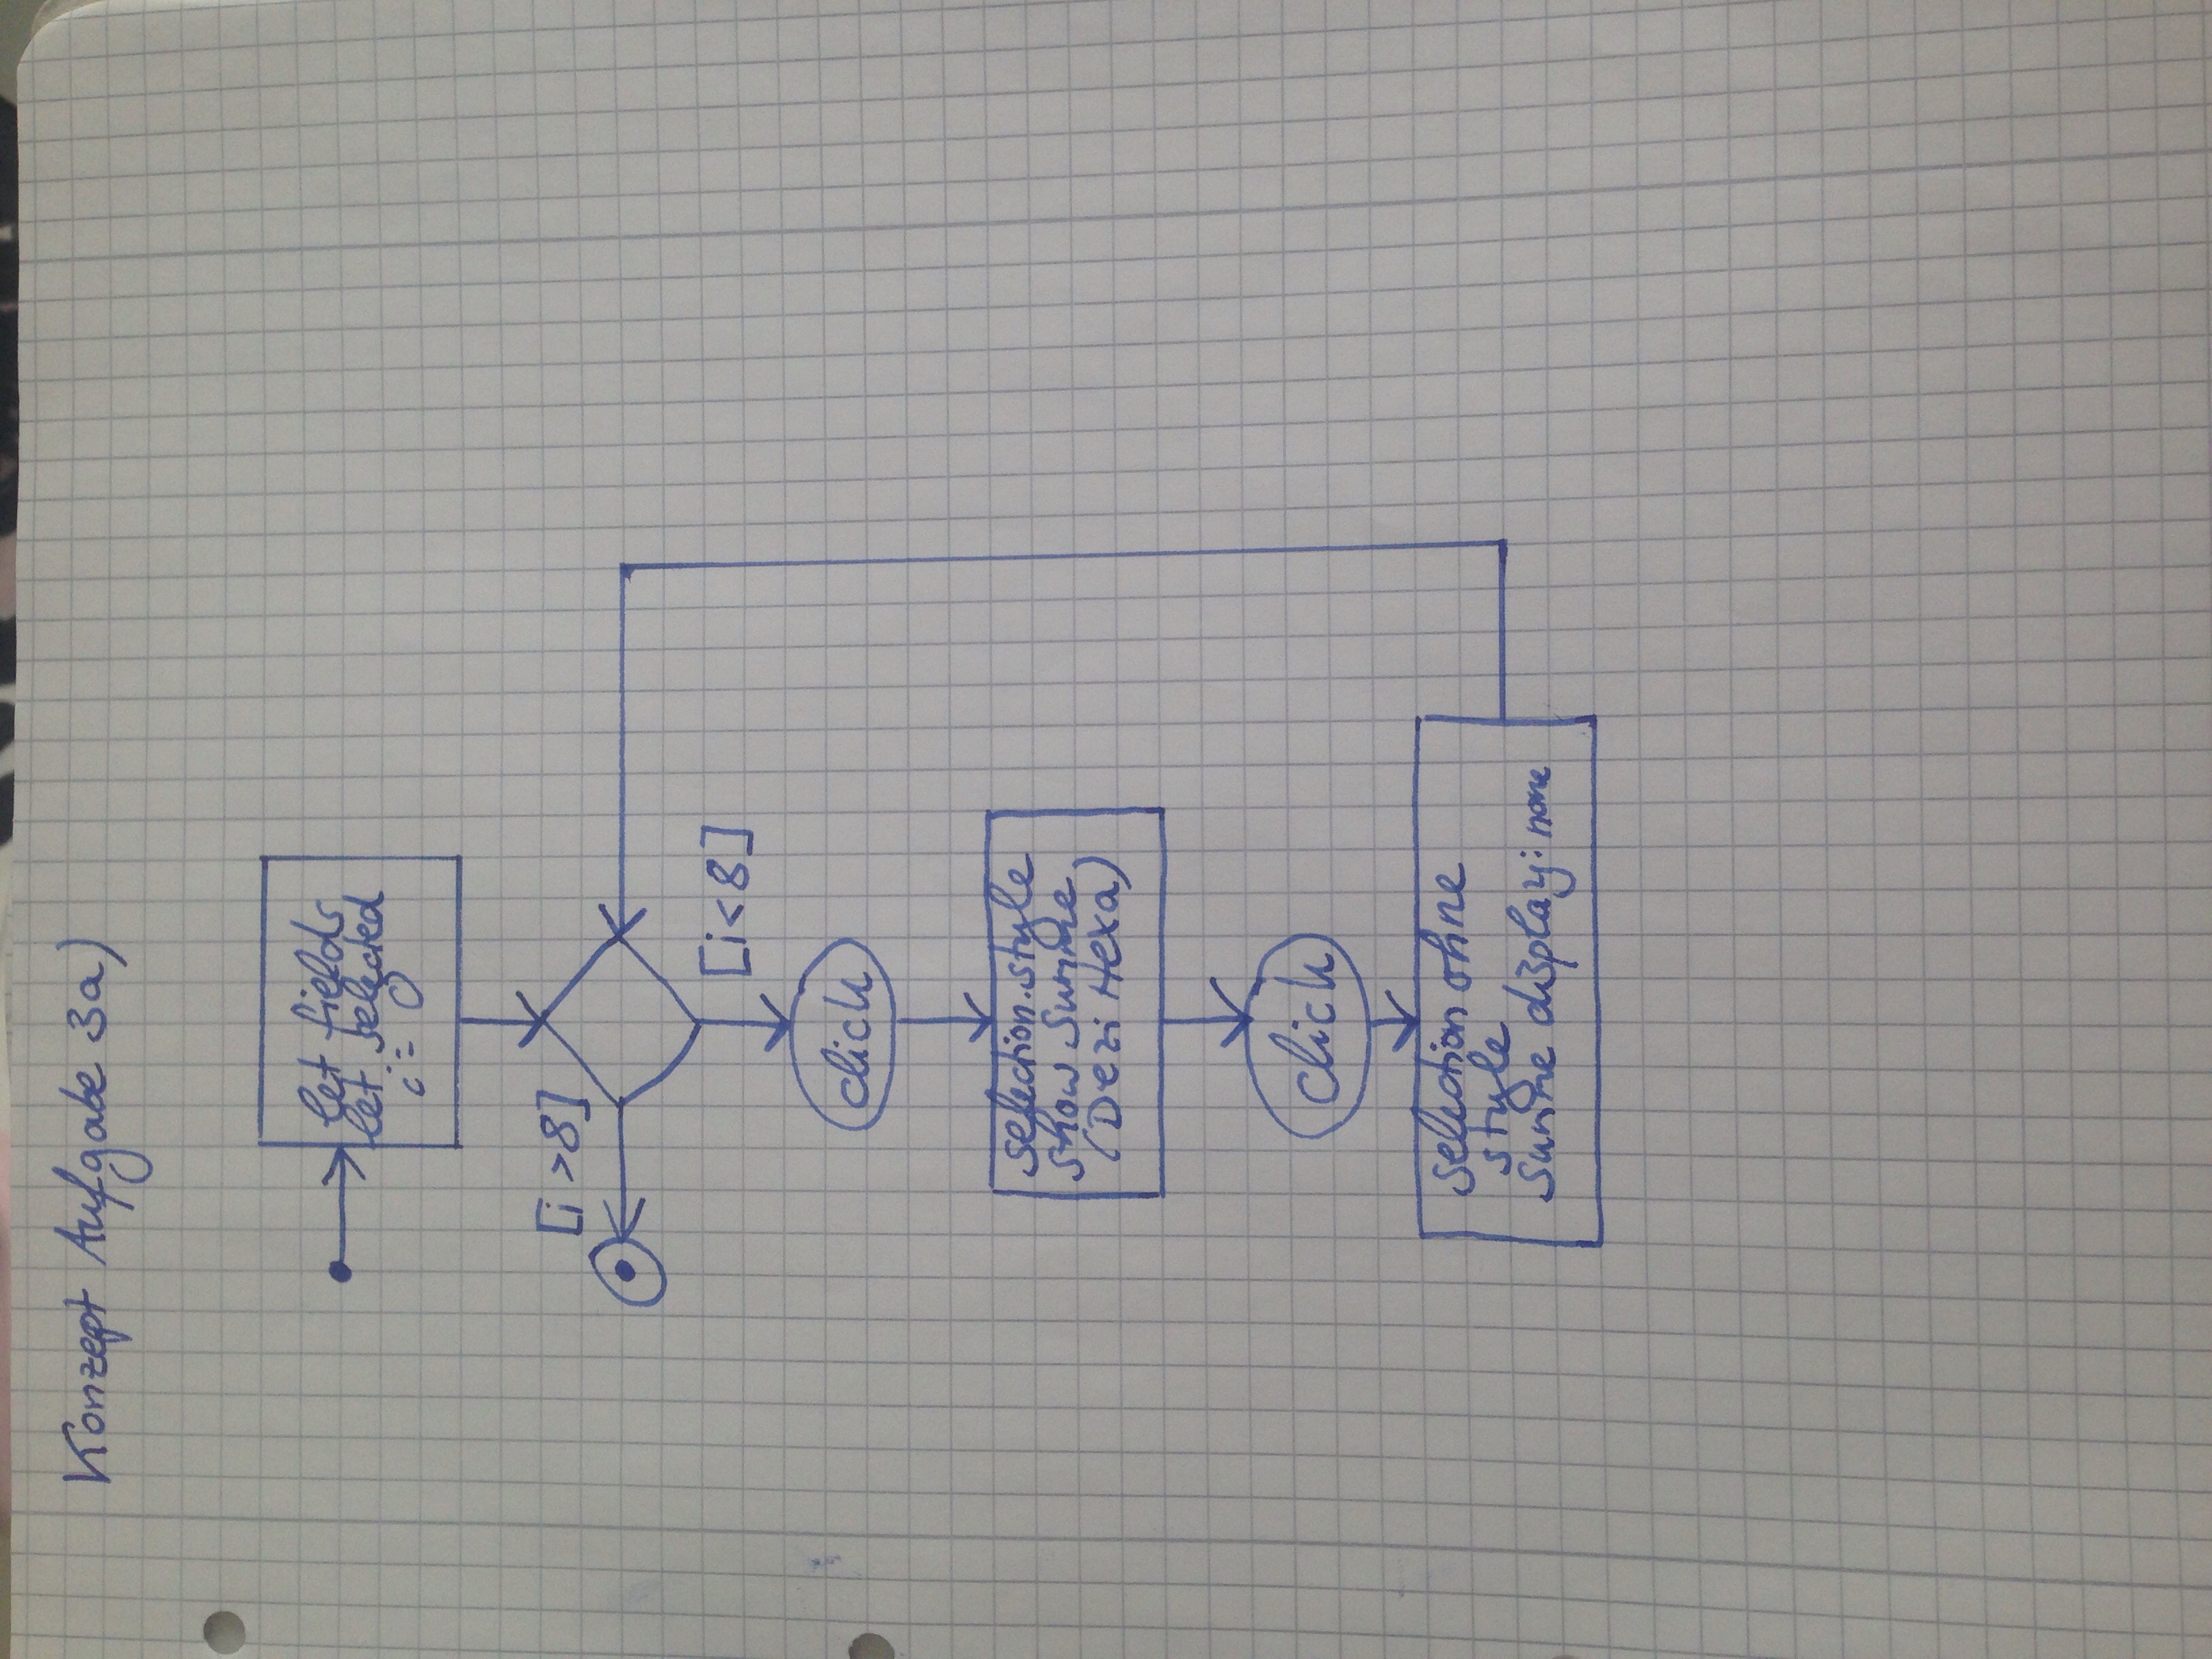 Konzept Aufgabe 3a)
let fields
let selected
i = 0
[i >8]
[i<8]
click
selection.style
show Summe
(Dezi Hexa)
click
selection ohne
style
Summe display: none